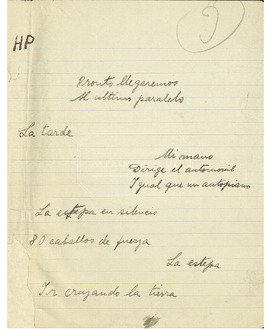 HP
Pronto llegaremos
Al ultimo paralelo
La tarde
Mi mano
Dirige el automovil
Igual que un autopiano
La estepa en silencio
80 caballos de fuerza
La estepa
Ir cruzando la tierra